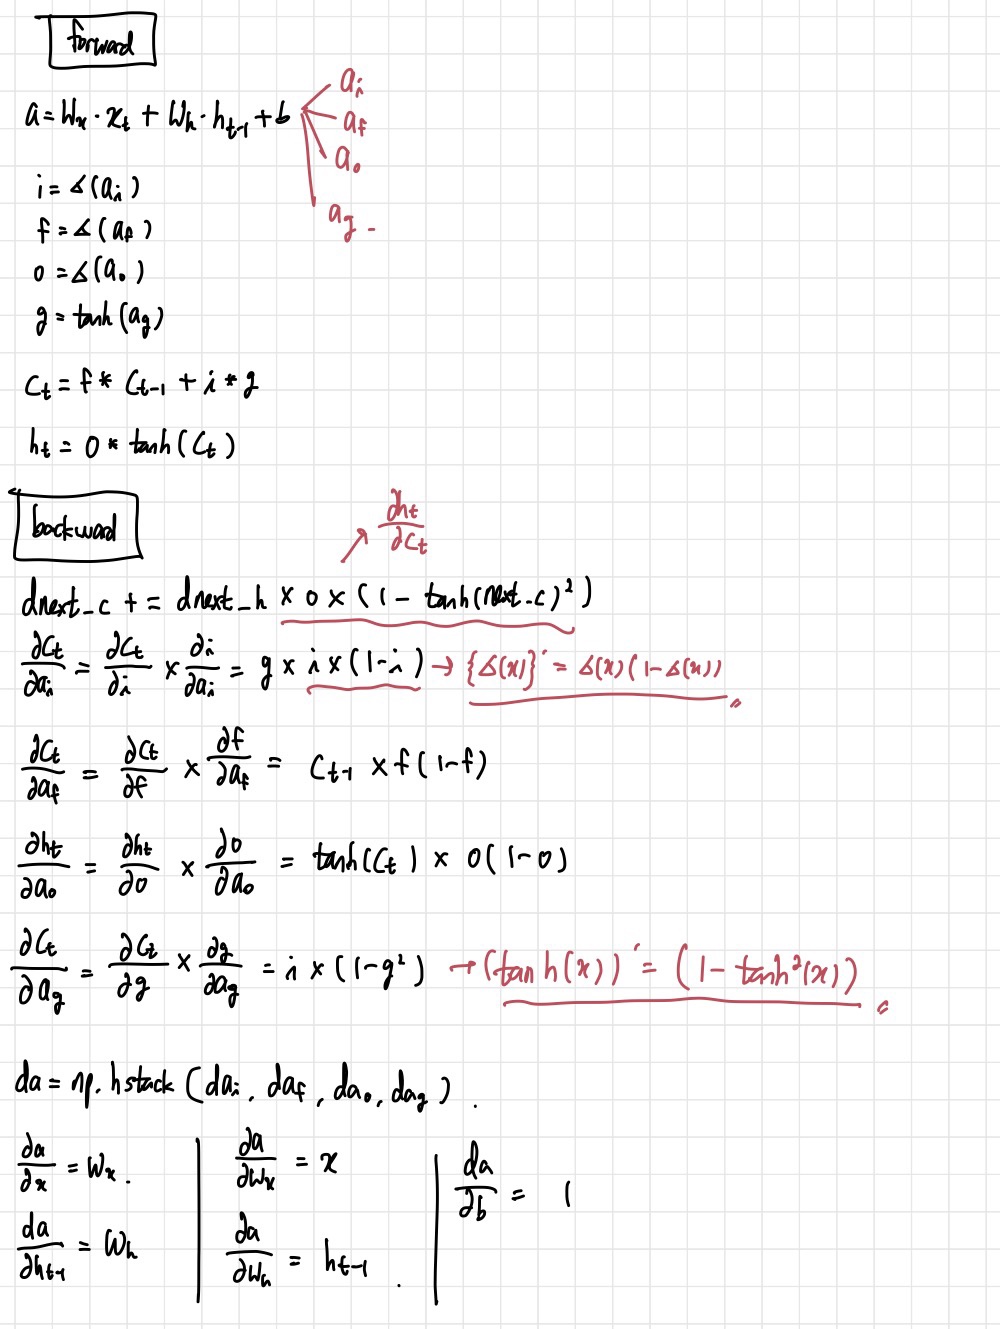 forward
a = Wx · xt + Wh · ht-1 + b
ai
af
ao
ag
i = σ(ai)
f = σ(af)
o = σ(ao)
g = tanh(ag)
Ct = f * Ct-1 + i * g
ht = o * tanh(Ct)
backward
∂ht/∂Ct
dnext_c += dnext_h × o × (1 - tanh(next_c)²)
∂Ct/∂ai = ∂Ct/∂i × ∂i/∂ai = g × i × (1-i) → {σ(x)}' = σ(x)(1-σ(x))
∂Ct/∂af = ∂Ct/∂f × ∂f/∂af = Ct-1 × f(1-f)
∂ht/∂ao = ∂ht/∂o × ∂o/∂ao = tanh(Ct) × o(1-o)
∂Ct/∂ag = ∂Ct/∂g × ∂g/∂ag = i × (1-g²) → (tanh(x))' = (1 - tanh²(x))
da = np.hstack(dai, daf, dao, dag).
∂a/∂x = Wx.
∂a/∂Wx = x
da/∂b = 1
da/∂ht-1 = Wh
∂a/∂Wh = ht-1.